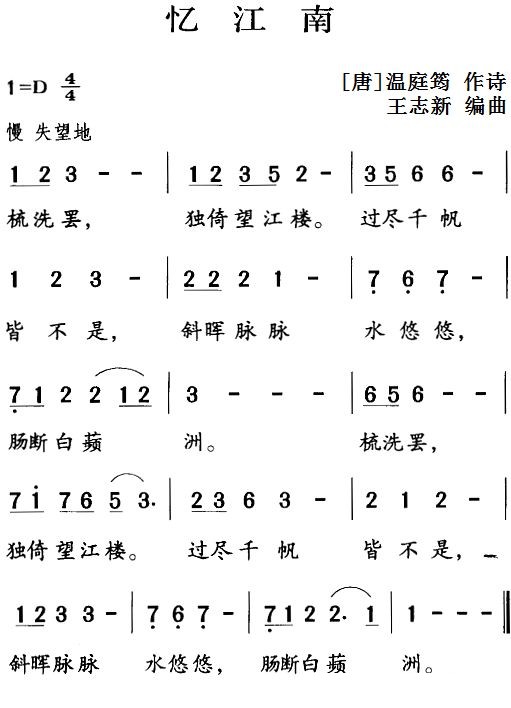 忆 江 南
1=D 4/4
[唐]温庭筠 作诗
王志新 编曲
慢 失望地
1 2 3 - - | 1 2 3 5 2 - | 3 5 6 6 - |
梳洗罢， 独倚望江楼。 过尽千帆
1 2 3 - | 2 2 2 1 - | 7 6 7 - |
皆 不 是， 斜晖脉脉 水悠悠，
7 1 2 2 1 2 | 3 - - - | 6 5 6 - - |
肠断白蘋 洲。 梳洗罢，
7 i 7 6 5 3. | 2 3 6 3 - | 2 1 2 - |
独倚望江楼。 过尽千 帆 皆 不 是，
1 2 3 3 - | 7 6 7 - | 7 1 2 2. 1 | 1 - - - ‖
斜晖脉脉 水悠悠， 肠断白蘋 洲。